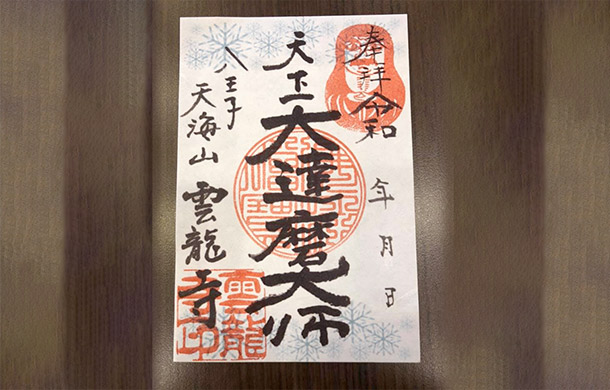 奉拝 令和 年 月 日
天下一大達磨大師
八王子
天海山 雲龍寺
雲龍寺印